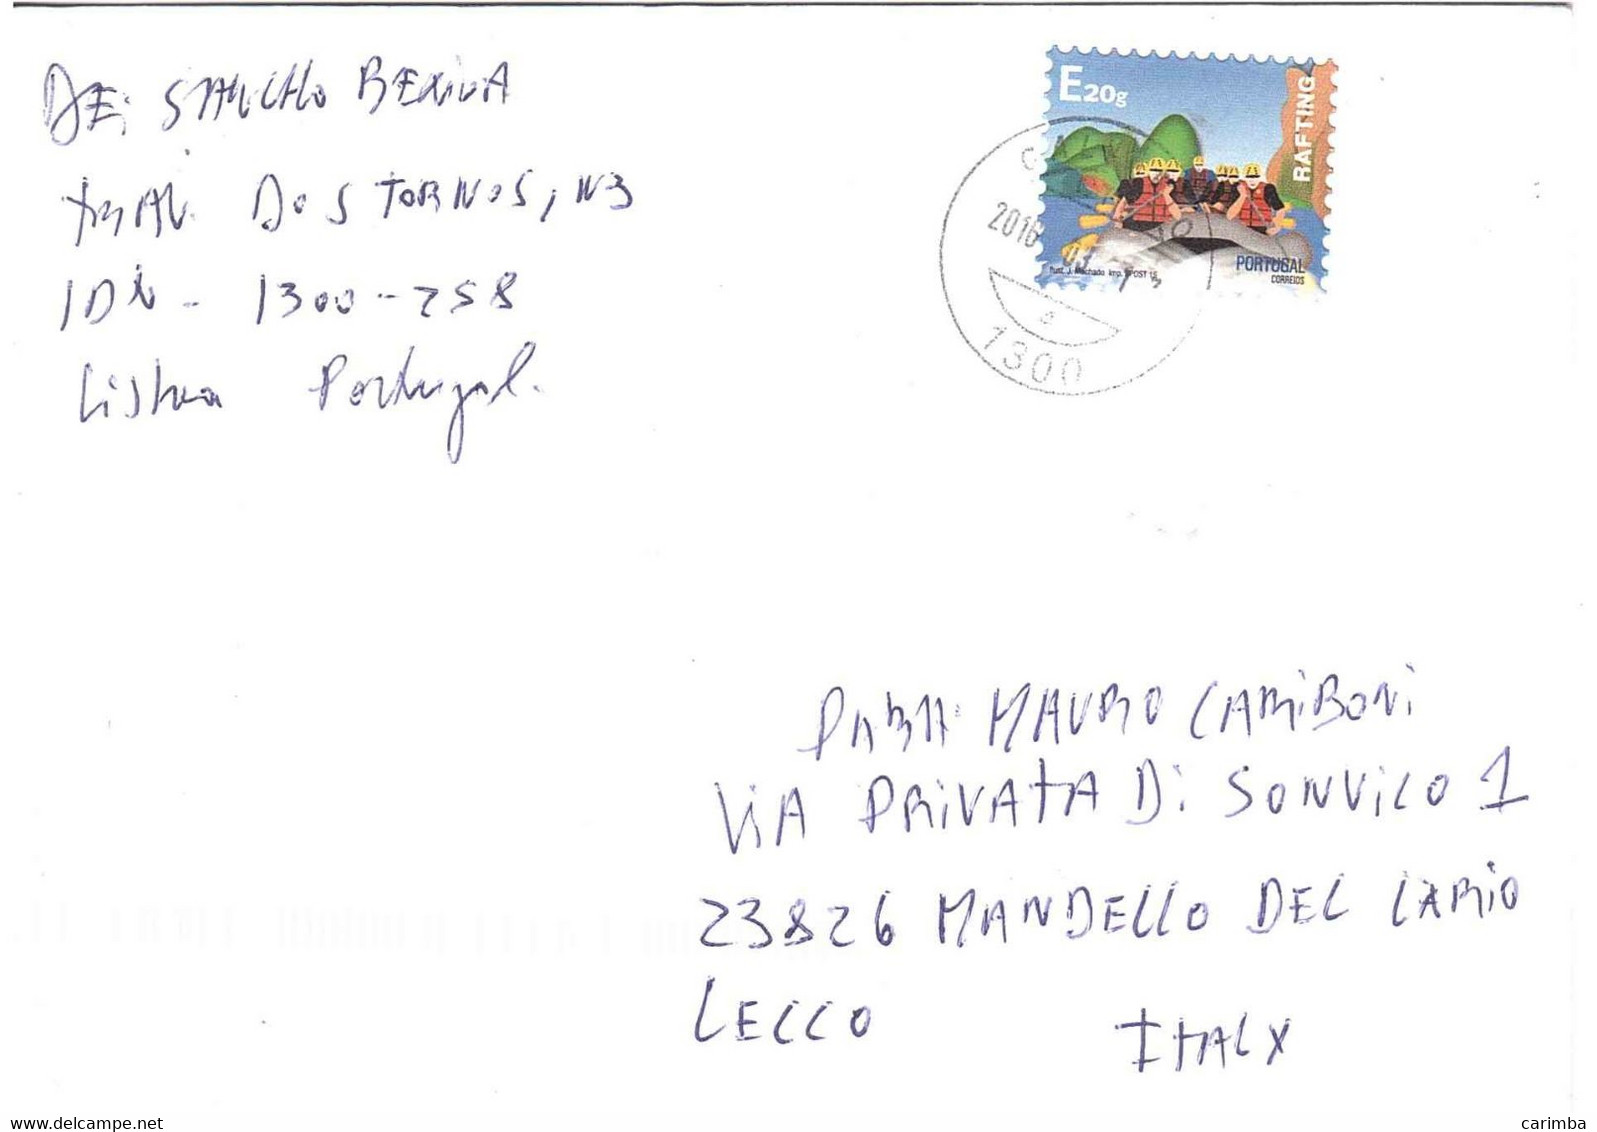 DE: SANCHO
DOS TORNOS, N3
1300-258
Lisboa Portugal.
E20g
RAFTING
PORTUGAL
CORREIOS
2016
1300
PARA MAURO CARIBONI
ViA PRIVATA Di SONVICO 1
23826 MANDELLO DEL LARIO
LECCO ITALY
www.delcampe.net
carimba